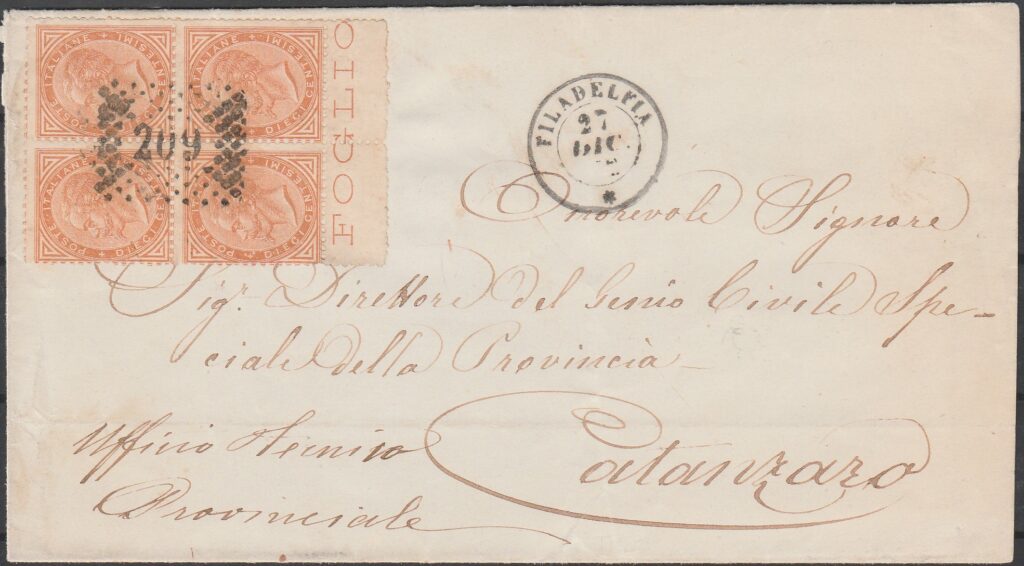 POSTE ITALIANE
DIECI CENTESIMI
POSTE ITALIANE
DIECI CENTESIMI
POSTE ITALIANE
DIECI CENTESIMI
POSTE ITALIANE
DIECI CENTESIMI
FOGLIO
209
FILADELFIA
27
DIC
Onorevole Signore
Sigr. Direttore del Genio Civile Spe-
ciale della Provincia
Catanzaro
Ufficio Tecnico
Provinciale